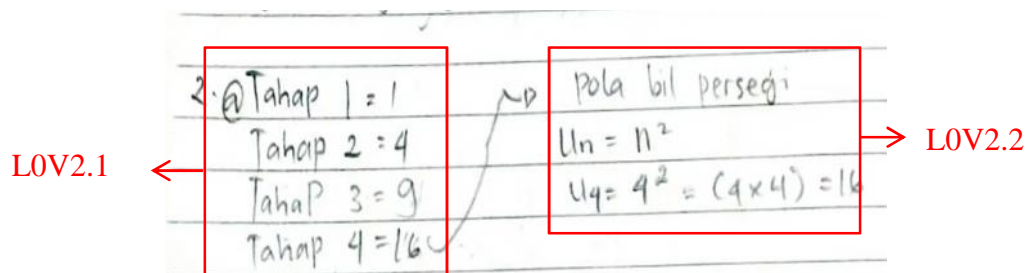 2. @ Tahap 1 = 1
Tahap 2 = 4
Tahap 3 = 9
Tahap 4 = 16
Pola bil persegi
Un = n²
U4 = 4² = (4×4) = 16
L0V2.1
L0V2.2